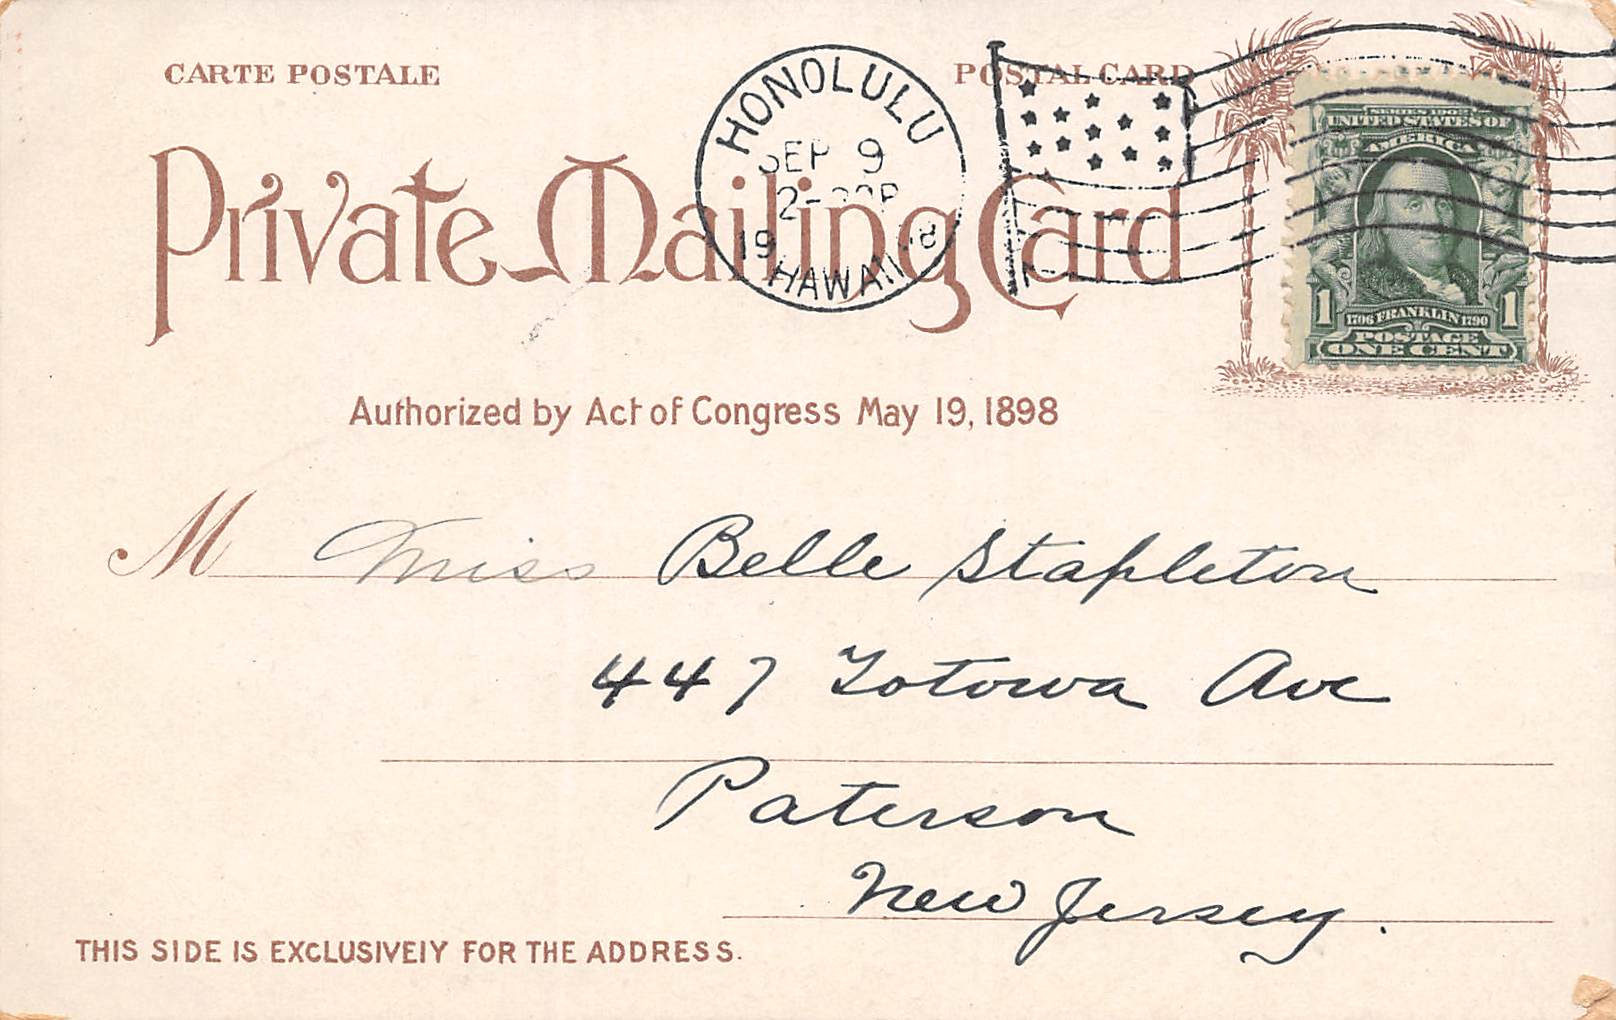 CARTE POSTALE
POSTAL CARD
HONOLULU
SEP 9
19
HAWAII
Private Mailing Card
SERIES 1902
UNITED STATES OF
AMERICA
1 1706 FRANKLIN 1790 1
POSTAGE
ONE CENT
Authorized by Act of Congress May 19, 1898
M Miss Belle Stapleton
447 Totowa Ave
Paterson
New Jersey.
THIS SIDE IS EXCLUSIVELY FOR THE ADDRESS.